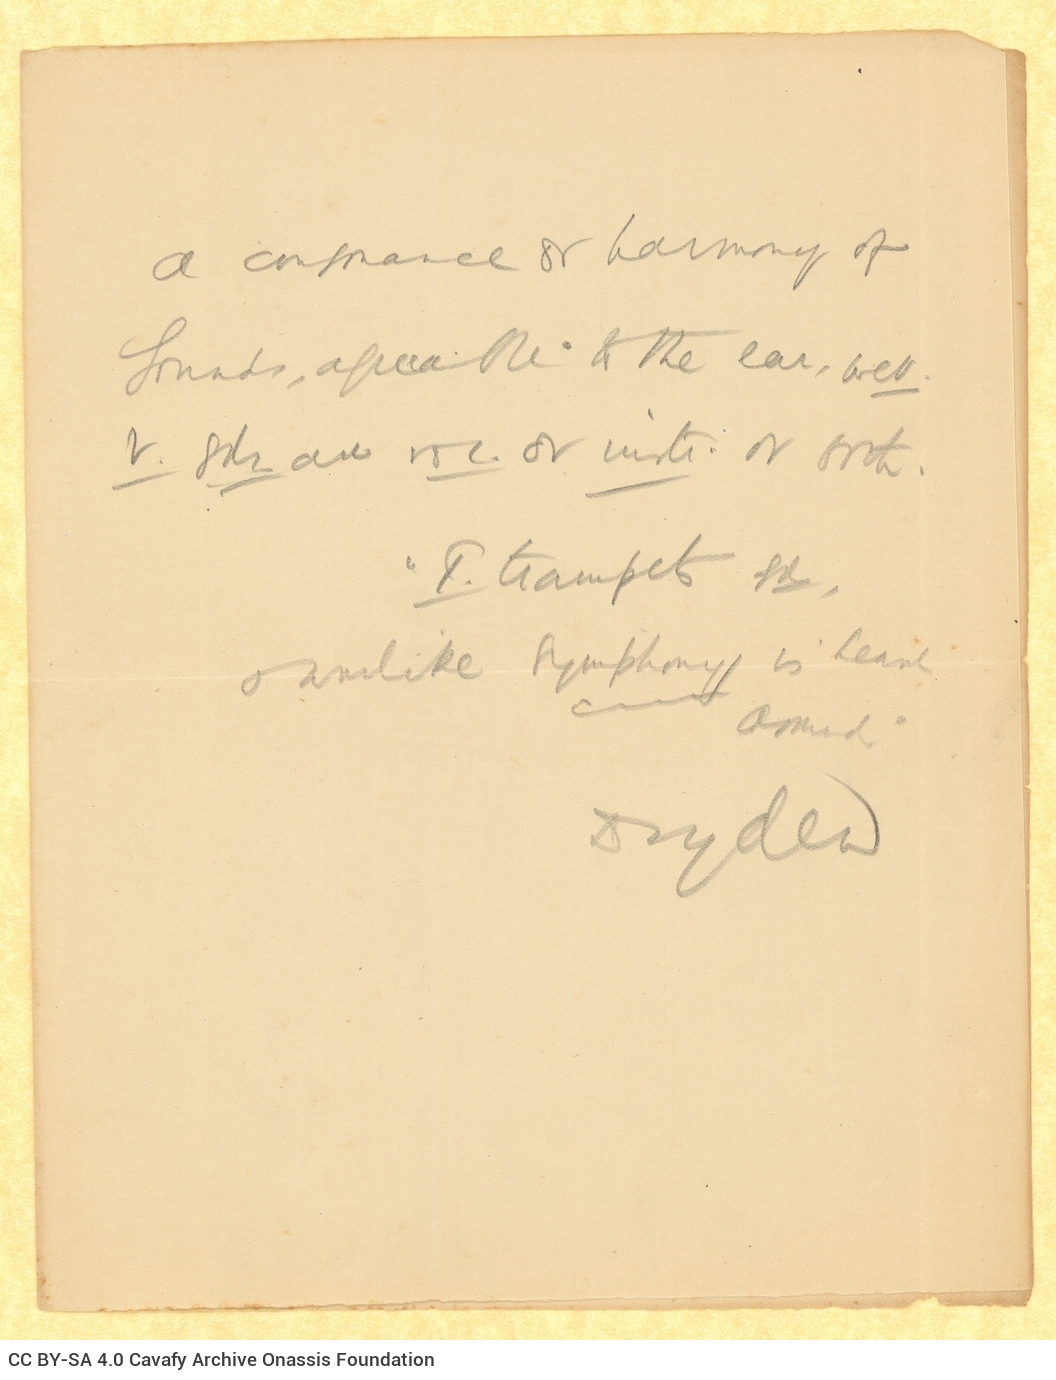 a consonance or harmony of
sounds, agreeable to the ear, wer.
t. sds are voc. or instr. or both.
"T. trumpets sd,
& warlike symphony is heard
around."
Dryden
CC BY-SA 4.0 Cavafy Archive Onassis Foundation